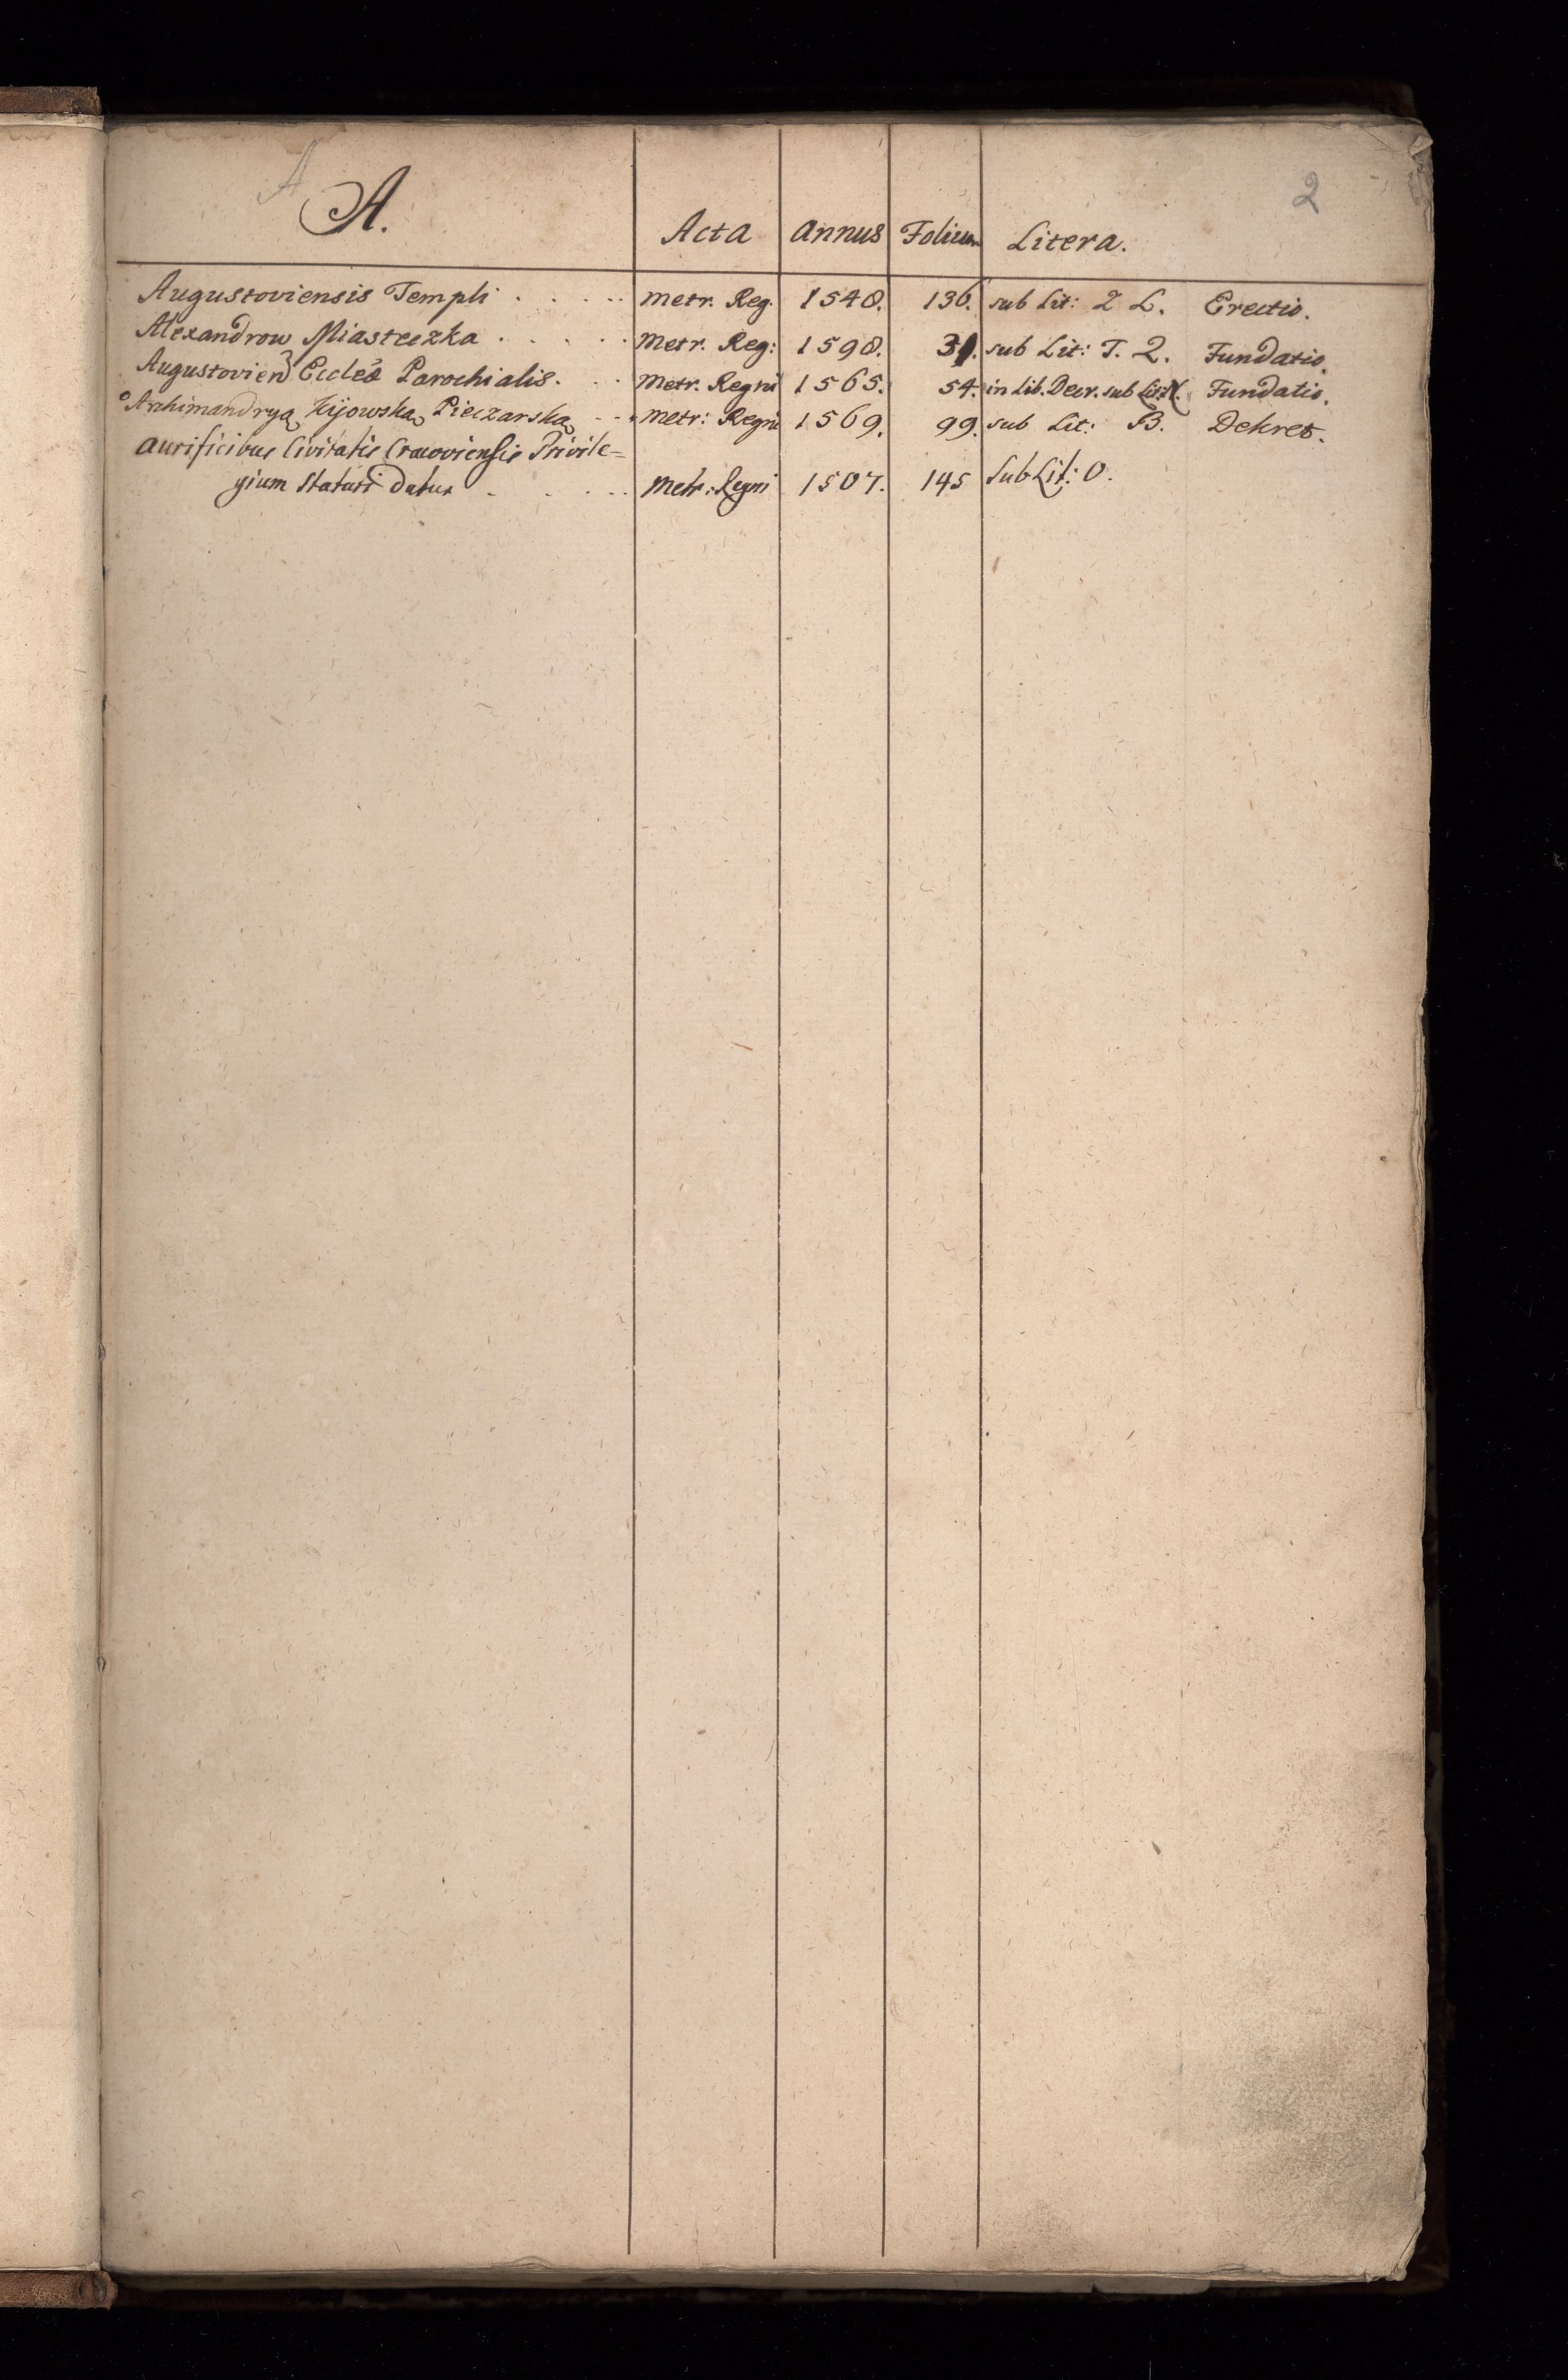 A
2
A. Acta Annus Folium Litera.
Augustoviensis Templi . . . . . Metr. Reg. 1548. 136. sub Lit: Z L. Erectio.
Alexandrow Miasteczka . . . . . Metr. Reg: 1598. 31. sub Lit: T. 2. Fundatio.
Augustovien Eccles Parochialis. . . Metr. Regni 1565. 54. in Lib. Decr. sub Lit: Fundatio.
Arhimandryą Kijowską Pieczarską - - . Metr: Regni 1569. 99. sub Lit: B. Dekret.
Aurificibus Civitatis Cracoviensis Privile=
gium Statuti datur . . . . Metr: Regni 1507. 145 Sub Lit: O.